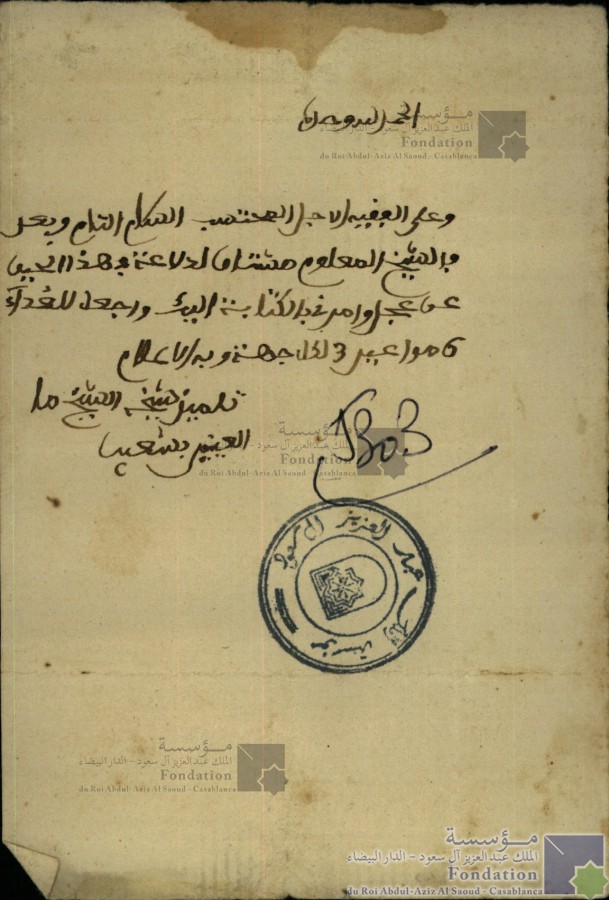 الحمد لله وحده
وعلى الفقيه الاجل المحتسب السلام التام وبعد
فالشيخ المعلوم مشتاق لدلاعة في هذا الحين
عن عجل وامرني بالكتابة اليك واجعل للغداء
6 مواعين 3 لكل جهة وبه الاعلام
تلميذ شيخه الشيخ ما
العينين بشعيب
عبد العزيز آل سعود
مؤسسة الملك
مؤسسة
الملك عبد العزيز آل سعود - الدار البيضاء
Fondation
du Roi Abdul-Aziz Al Saoud - Casablanca
مؤسسة
الملك عبد العزيز آل سعود - الدار البيضاء
Fondation
du Roi Abdul-Aziz Al Saoud - Casablanca
مؤسسة
الملك عبد العزيز آل سعود - الدار البيضاء
Fondation
du Roi Abdul-Aziz Al Saoud - Casablanca
مؤسسة
الملك عبد العزيز آل سعود - الدار البيضاء
Fondation
du Roi Abdul-Aziz Al Saoud - Casablanca